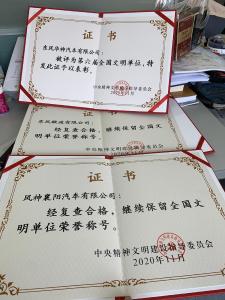 证书
东风华神汽车有限公司：
被评为第六届全国文明单位，特
发此证予以表彰。
中央精神文明建设指导委员会
2020年11月
证书
公司：
经复查合格，继续保留全国文
明单位荣誉称号。
证书
风神襄阳汽车有限公司：
经复查合格，继续保留全国文
明单位荣誉称号。
中央精神文明建设指导委员会
2020年11月